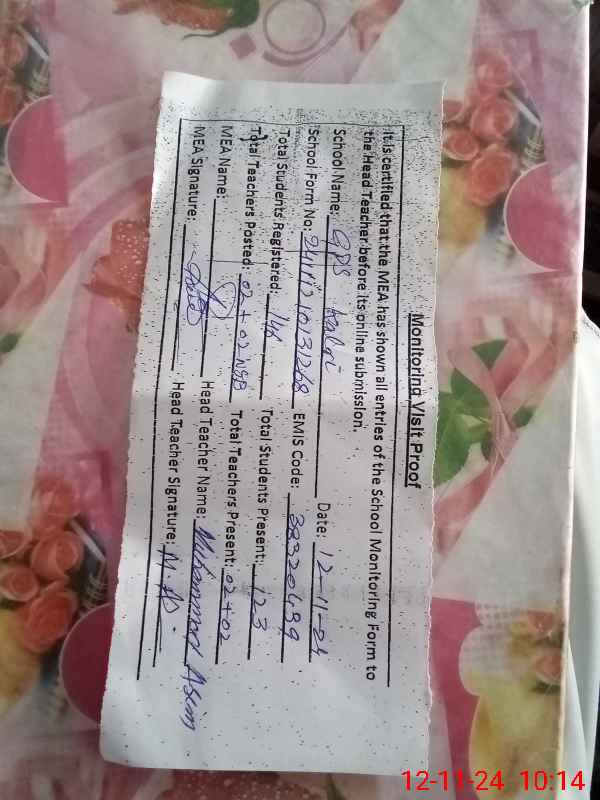 Monitoring Visit Proof
It is certified that the MEA has shown all entries of the School Monitoring Form to
the Head Teacher before its online submission.
School Name: GPS Date: 12-11-24
School Form No: EMIS Code: 38320439
Total Students Registered: 146 Total Students Present: 123
Total Teachers Posted: 02+02 NSB Total Teachers Present: 02+02
MEA Name: Head Teacher Name: Muhammad Asim
MEA Signature: Head Teacher Signature:
12-11-24 10:14